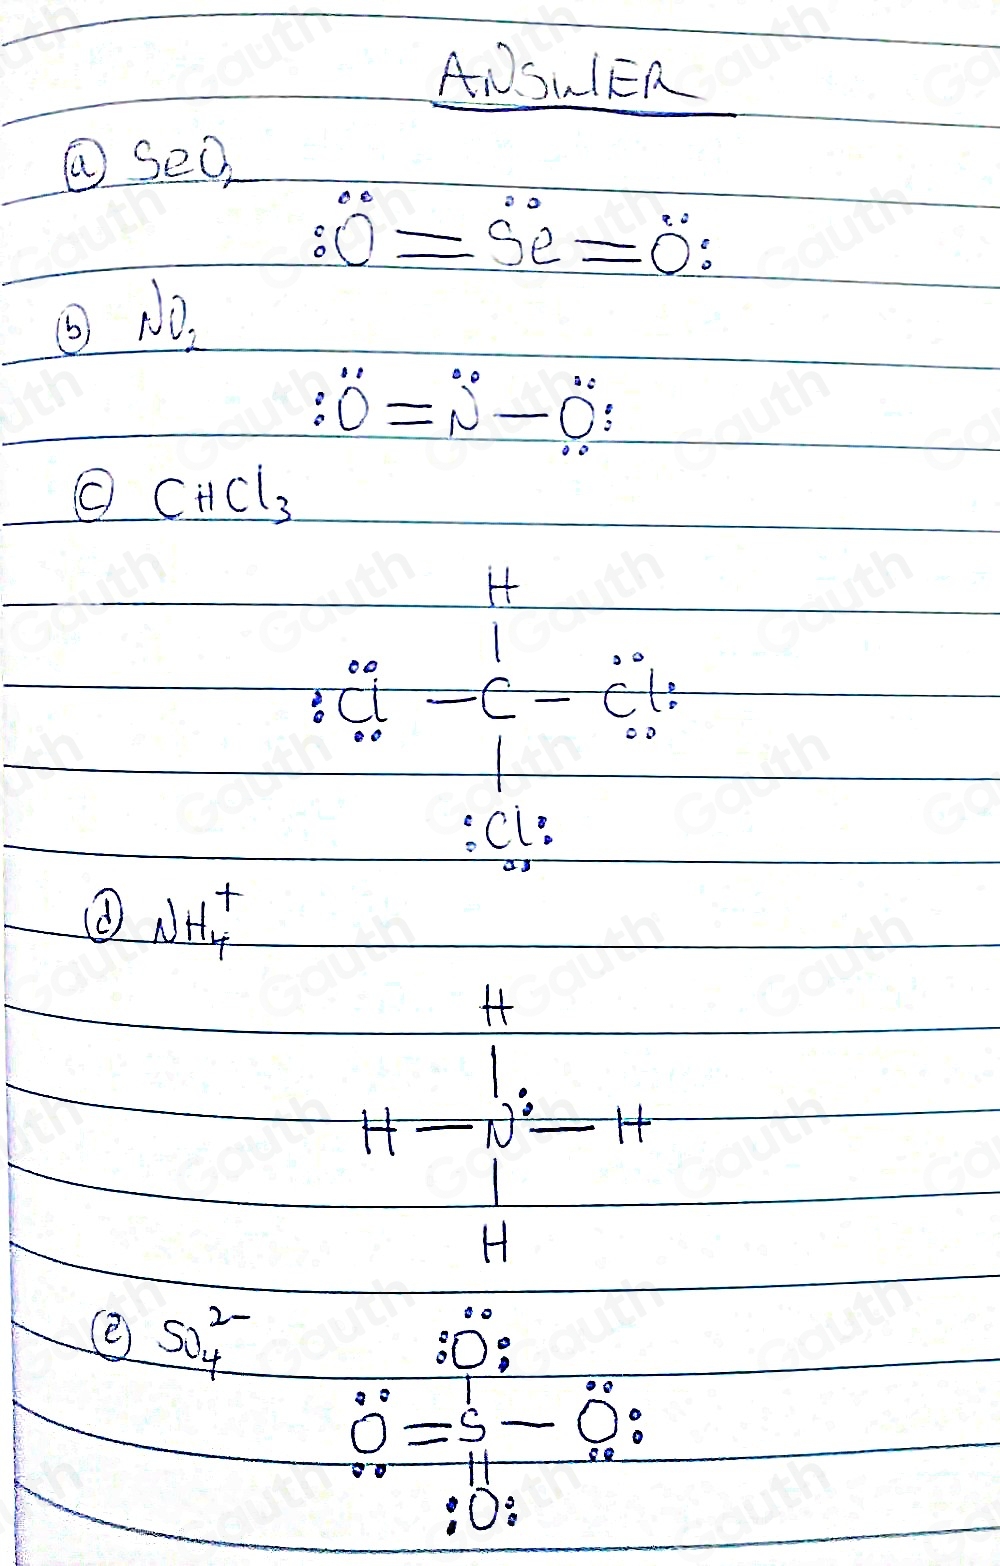 ANSWER
(a) SeO₂
:Ö = S̈e = Ö:
(b) NO₂
:Ö = N̈ – Ö:
(c) CHCl₃
H
|
:Cl – C – Cl:
|
:Cl:
(d) NH₄⁺
H
|
H – N: – H
|
H
(e) SO₄²⁻
:Ö:
|
Ö = S – Ö:
||
:O:
Gauth